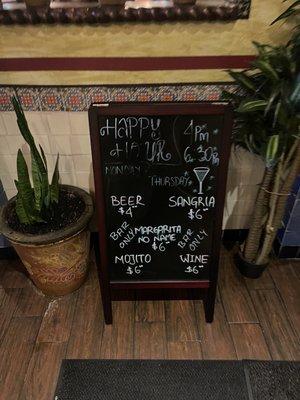 HAPPY 4PM
HOUR 6:30PM
MONDAY THURSDAY
BEER SANGRIA
$4 $6
BAR ONLY MARGARITA BAR ONLY
NO NAME
$6
MOJITO WINE
$6 $6